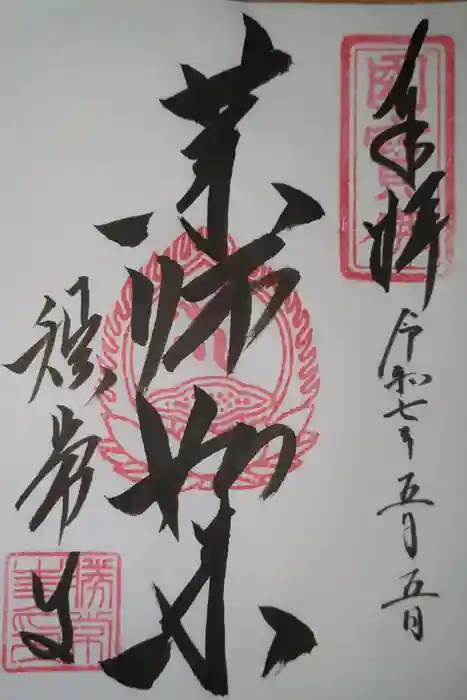 奉拝
令和七年五月五日
薬師如来
勝常寺